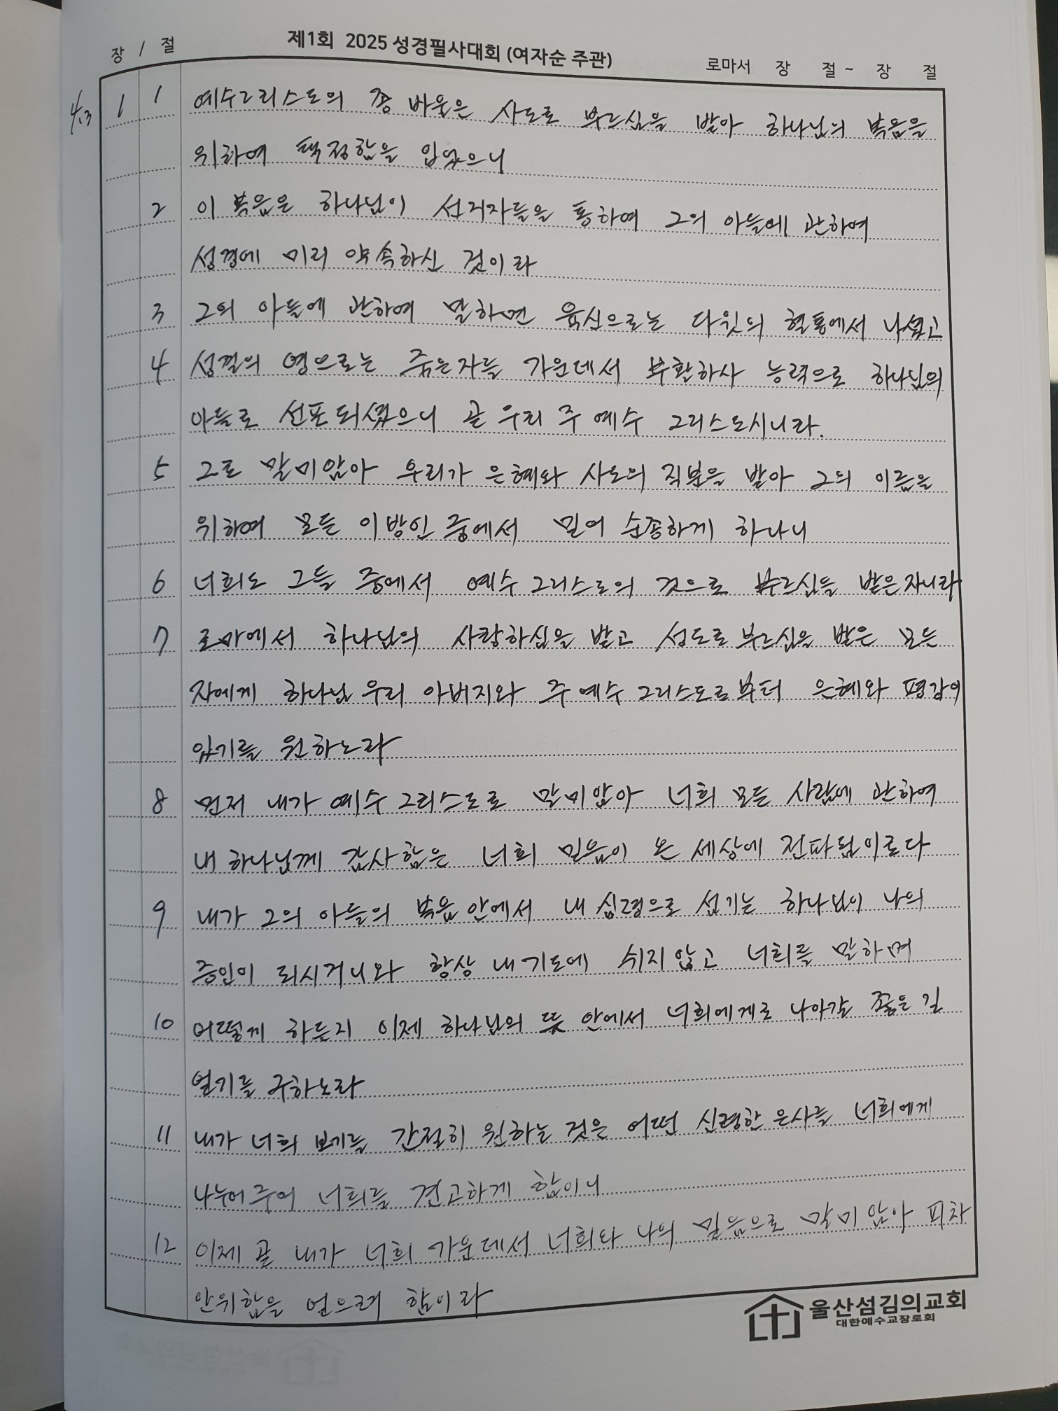 제1회 2025 성경필사대회 (여자순 주관)
장 / 절
로마서 장 절 ~ 장 절
4.3 1 1 예수그리스도의 종 바울은 사도로 부르심을 받아 하나님의 복음을
위하여 택정함을 입었으니
2 이 복음은 하나님이 선지자들을 통하여 그의 아들에 관하여
성경에 미리 약속하신 것이라
3 그의 아들에 관하여 말하면 육신으로는 다윗의 혈통에서 나셨고
4 성결의 영으로는 죽은자들 가운데서 부활하사 능력으로 하나님의
아들로 선포되셨으니 곧 우리 주 예수 그리스도시니라.
5 그로 말미암아 우리가 은혜와 사도의 직분을 받아 그의 이름을
위하여 모든 이방인 중에서 믿어 순종하게 하나니
6 너희도 그들 중에서 예수 그리스도의 것으로 부르심을 받은자니라
7 로마에서 하나님의 사랑하심을 받고 성도로 부르심을 받은 모든
자에게 하나님 우리 아버지와 주 예수 그리스도로부터 은혜와 평강이
있기를 원하노라
8 먼저 내가 예수 그리스도로 말미암아 너희 모든 사람에 관하여
내 하나님께 감사함은 너희 믿음이 온 세상에 전파됨이로다
9 내가 그의 아들의 복음 안에서 내 심령으로 섬기는 하나님이 나의
증인이 되시거니와 항상 내 기도에 쉬지않고 너희를 말하며
10 어떻게 하든지 이제 하나님의 뜻 안에서 너희에게로 나아갈 좋은 길
얻기를 구하노라
11 내가 너희 보기를 간절히 원하는 것은 어떤 신령한 은사를 너희에게
나누어 주어 너희를 견고하게 함이니
12 이제 곧 내가 너희 가운데서 너희와 나의 믿음으로 말미암아 피차
안위함을 얻으려 함이라
울산섬김의교회
대한예수교장로회